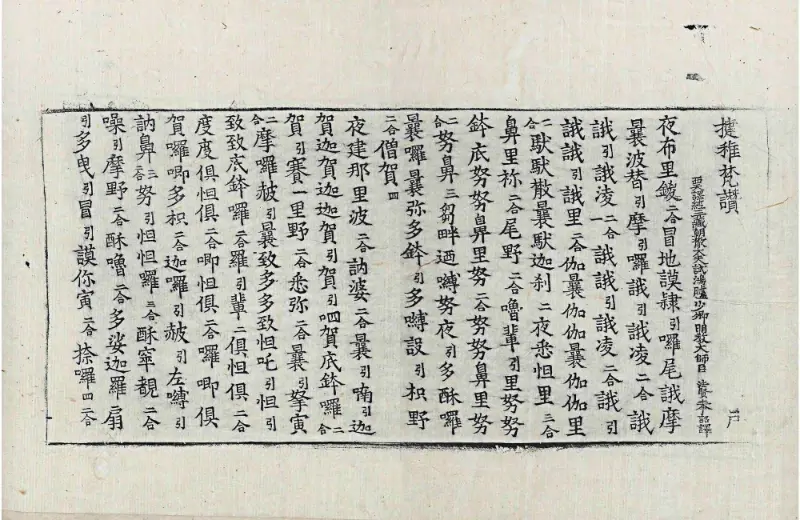 揵稚梵讚
西天譯經三藏朝散大夫試鴻臚少卿明教大師臣法賢奉詔譯
夜布里皷二合冒地謨隷引囉尾誐摩
曩波替引摩引囉誐引誐凌二合誐
誐引誐凌一二合誐誐引誐凌二合誐引
誐誐引誐里二合伽曩伽伽曩伽伽里
二合䭾䭾散曩䭾迦刹二夜悉怛里三合
鼻里祢二合尾野二合嚕輩引里努努
鉢底努努鼻里努二合努努鼻里努
二合努鼻三芻畔迺嚩努夜引多酥囉
曩囉曩弥多鉢引多嚩設引枳野
二合僧賀四
夜建那里波二合訥婆二合曩引喃引迦
賀迦賀迦迦賀引賀引呬賀底鉢囉二合
賀引賽一里野二合悉弥二合曩引拏寅
二合摩囉赦引曩致多多致怛吒引怛引
致致底鉢囉二合羅引輩二俱怛俱二合
度度俱怛俱二合唧怛俱二合囉唧俱
賀囉唧多枳二合迦囉引赦引左嚩引
訥鼻二合努引怛怛囉三合酥寧覩二合
噪引摩野二合酥嚕二合多娑迦羅扇
引多曳引冒引謨你寅二合捺囉四二合